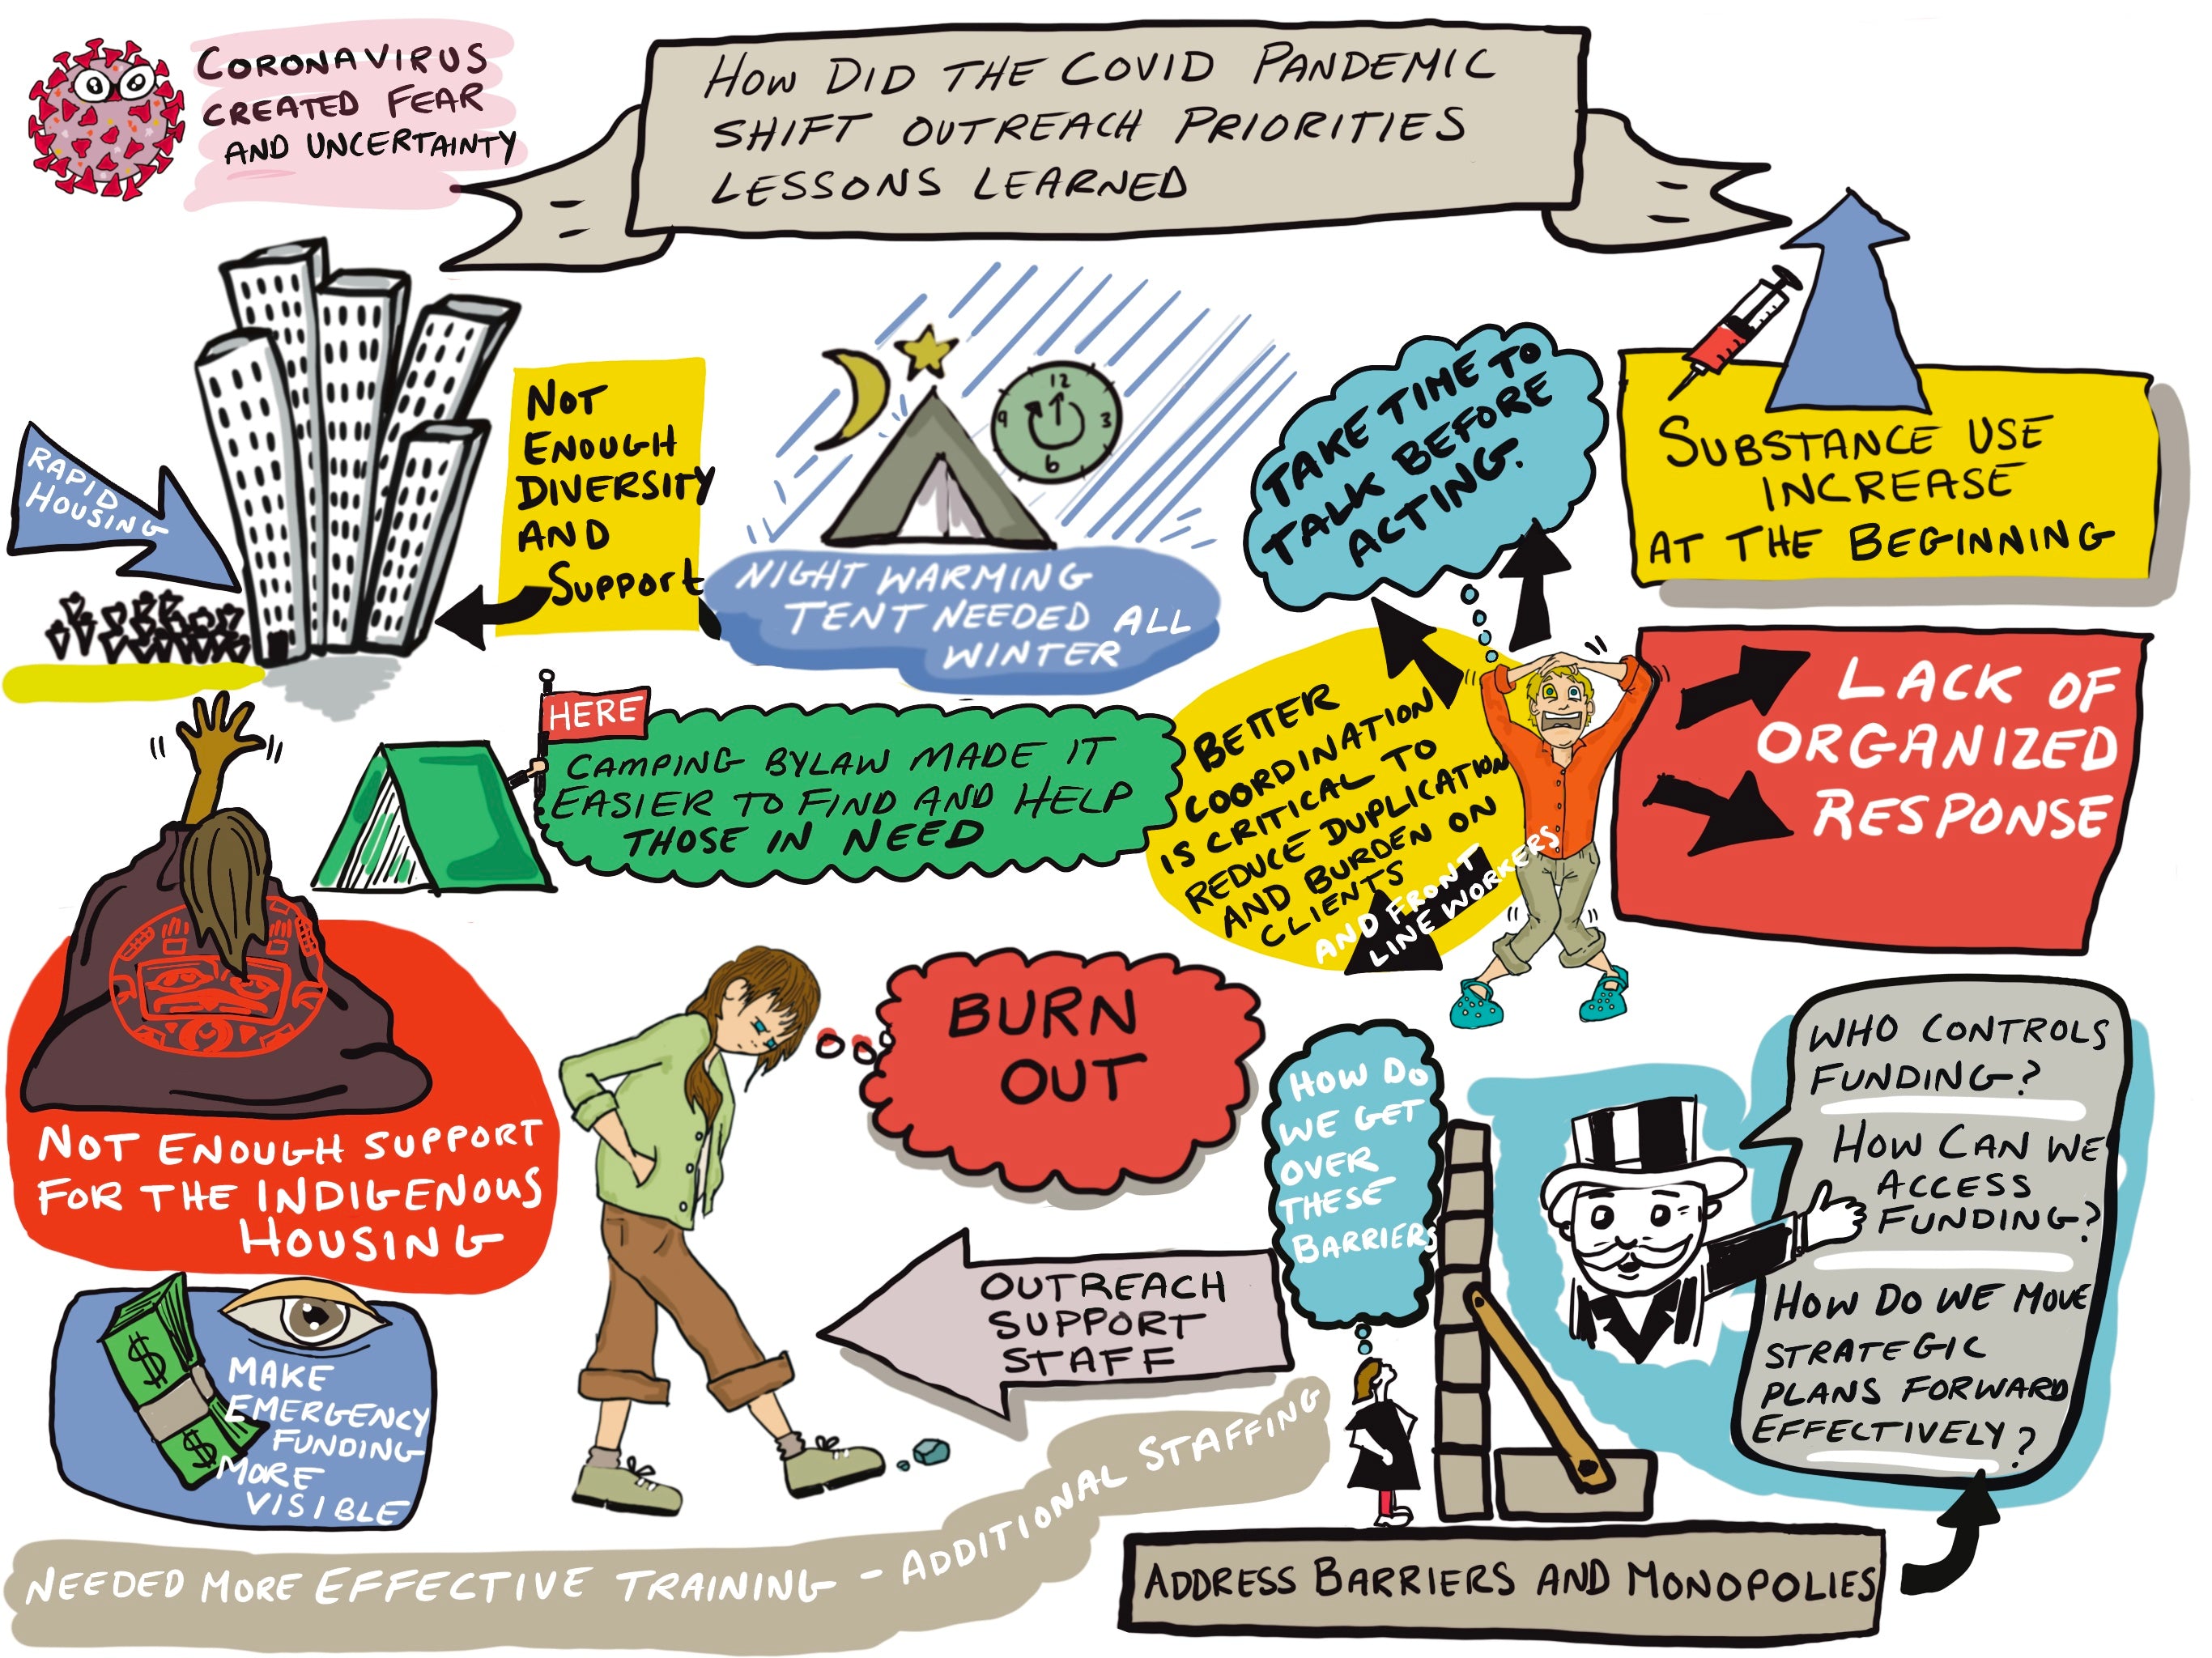 CORONAVIRUS
CREATED FEAR
AND UNCERTAINTY
HOW DID THE COVID PANDEMIC
SHIFT OUTREACH PRIORITIES
LESSONS LEARNED
RAPID
HOUSING
NOT
ENOUGH
DIVERSITY
AND
SUPPORT
12
3
6
9
NIGHT WARMING
TENT NEEDED ALL
WINTER
TAKE TIME TO
TALK BEFORE
ACTING.
SUBSTANCE USE
INCREASE
AT THE BEGINNING
HERE
CAMPING BYLAW MADE IT
EASIER TO FIND AND HELP
THOSE IN NEED
BETTER
COORDINATION
IS CRITICAL TO
REDUCE DUPLICATION
AND BURDEN ON
CLIENTS
AND FRONT
LINE WORKERS
LACK OF
ORGANIZED
RESPONSE
NOT ENOUGH SUPPORT
FOR THE INDIGENOUS
HOUSING
BURN
OUT
HOW DO
WE GET
OVER
THESE
BARRIERS
WHO CONTROLS
FUNDING?
HOW CAN WE
ACCESS
FUNDING?
HOW DO WE MOVE
STRATEGIC
PLANS FORWARD
EFFECTIVELY?
OUTREACH
SUPPORT
STAFF
$
$
MAKE
EMERGENCY
FUNDING
MORE
VISIBLE
NEEDED MORE EFFECTIVE TRAINING - ADDITIONAL STAFFING
ADDRESS BARRIERS AND MONOPOLIES